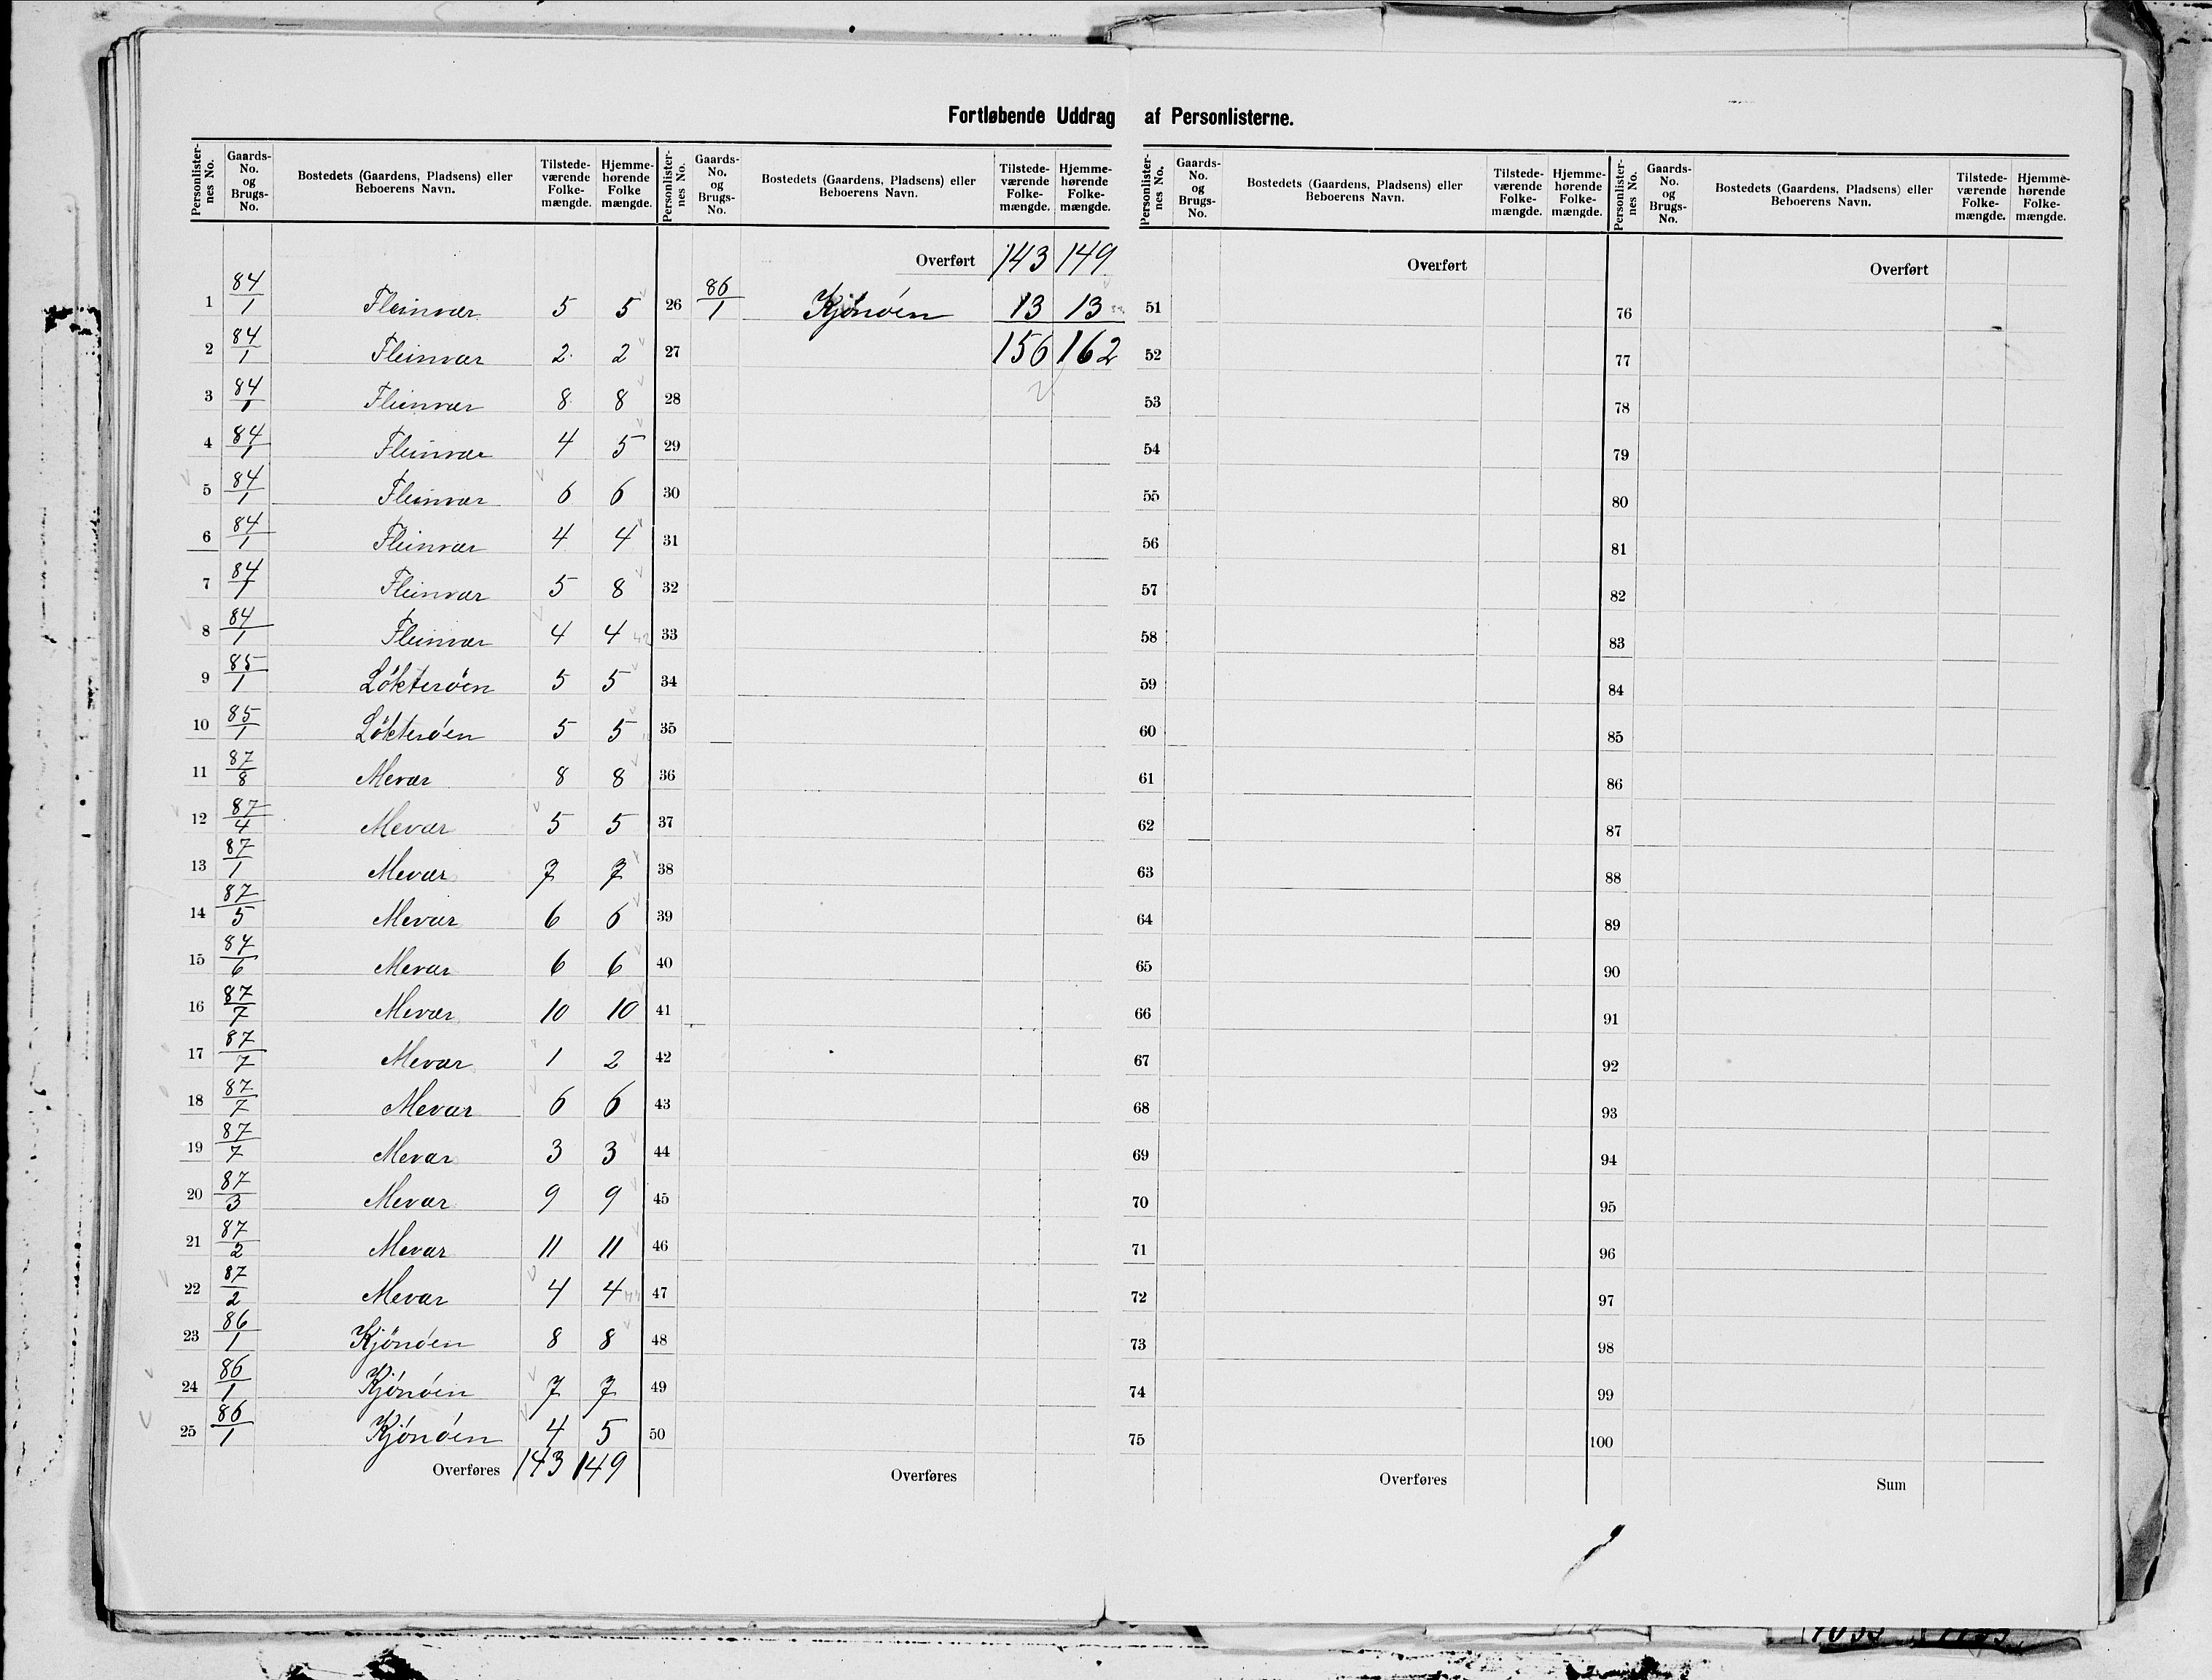 Fortløbende Uddrag af Personlisterne.
Personlister-nes No. Gaards-No. og Brugs-No. Bostedets (Gaardens, Pladsens) eller Beboerens Navn. Tilstede-værende Folke-mængde. Hjemme-hørende Folke mængde.
1 84/1 Fleinvær 5 5
2 84/1 Fleinvær 2 2
3 84/1 Fleinvær 8 8
4 84/1 Fleinvær 4 5
5 84/1 Fleinvær 6 6
6 84/1 Fleinvær 4 4
7 84/1 Fleinvær 5 8
8 84/1 Fleinvær 4 4 42
9 85/1 Løkterøen 5 5
10 85/1 Løkterøen 5 5
11 87/8 Mevær 8 8
12 87/4 Mevær 5 5
13 87/1 Mevær 7 7
14 87/5 Mevær 6 6
15 87/6 Mevær 6 6
16 87/7 Mevær 10 10
17 87/7 Mevær 1 2
18 87/7 Mevær 6 6
19 87/7 Mevær 3 3
20 87/3 Mevær 9 9
21 87/2 Mevær 11 11
22 87/2 Mevær 4 4
23 86/1 Kjønøen 8 8
24 86/1 Kjønøen 7 7
25 86/1 Kjønøen 4 5
Overføres 143 149
Personlister-nes No. Gaards-No. og Brugs-No. Bostedets (Gaardens, Pladsens) eller Beboerens Navn. Tilstede-værende Folke-mængde. Hjemme-hørende Folke-mængde.
Overført 143 149
26 86/1 Kjønøen 13 13
27 156 162
28
29
30
31
32
33
34
35
36
37
38
39
40
41
42
43
44
45
46
47
48
49
50
Overføres
Personlister-nes No. Gaards-No. og Brugs-No. Bostedets (Gaardens, Pladsens) eller Beboerens Navn. Tilstede-værende Folke-mængde. Hjemme-hørende Folke-mængde.
Overført
51
52
53
54
55
56
57
58
59
60
61
62
63
64
65
66
67
68
69
70
71
72
73
74
75
Overføres
Personlister-nes No. Gaards-No. og Brugs-No. Bostedets (Gaardens, Pladsens) eller Beboerens Navn. Tilstede-værende Folke-mængde. Hjemme-hørende Folke-mængde.
Overført
76
77
78
79
80
81
82
83
84
85
86
87
88
89
90
91
92
93
94
95
96
97
98
99
100
Sum